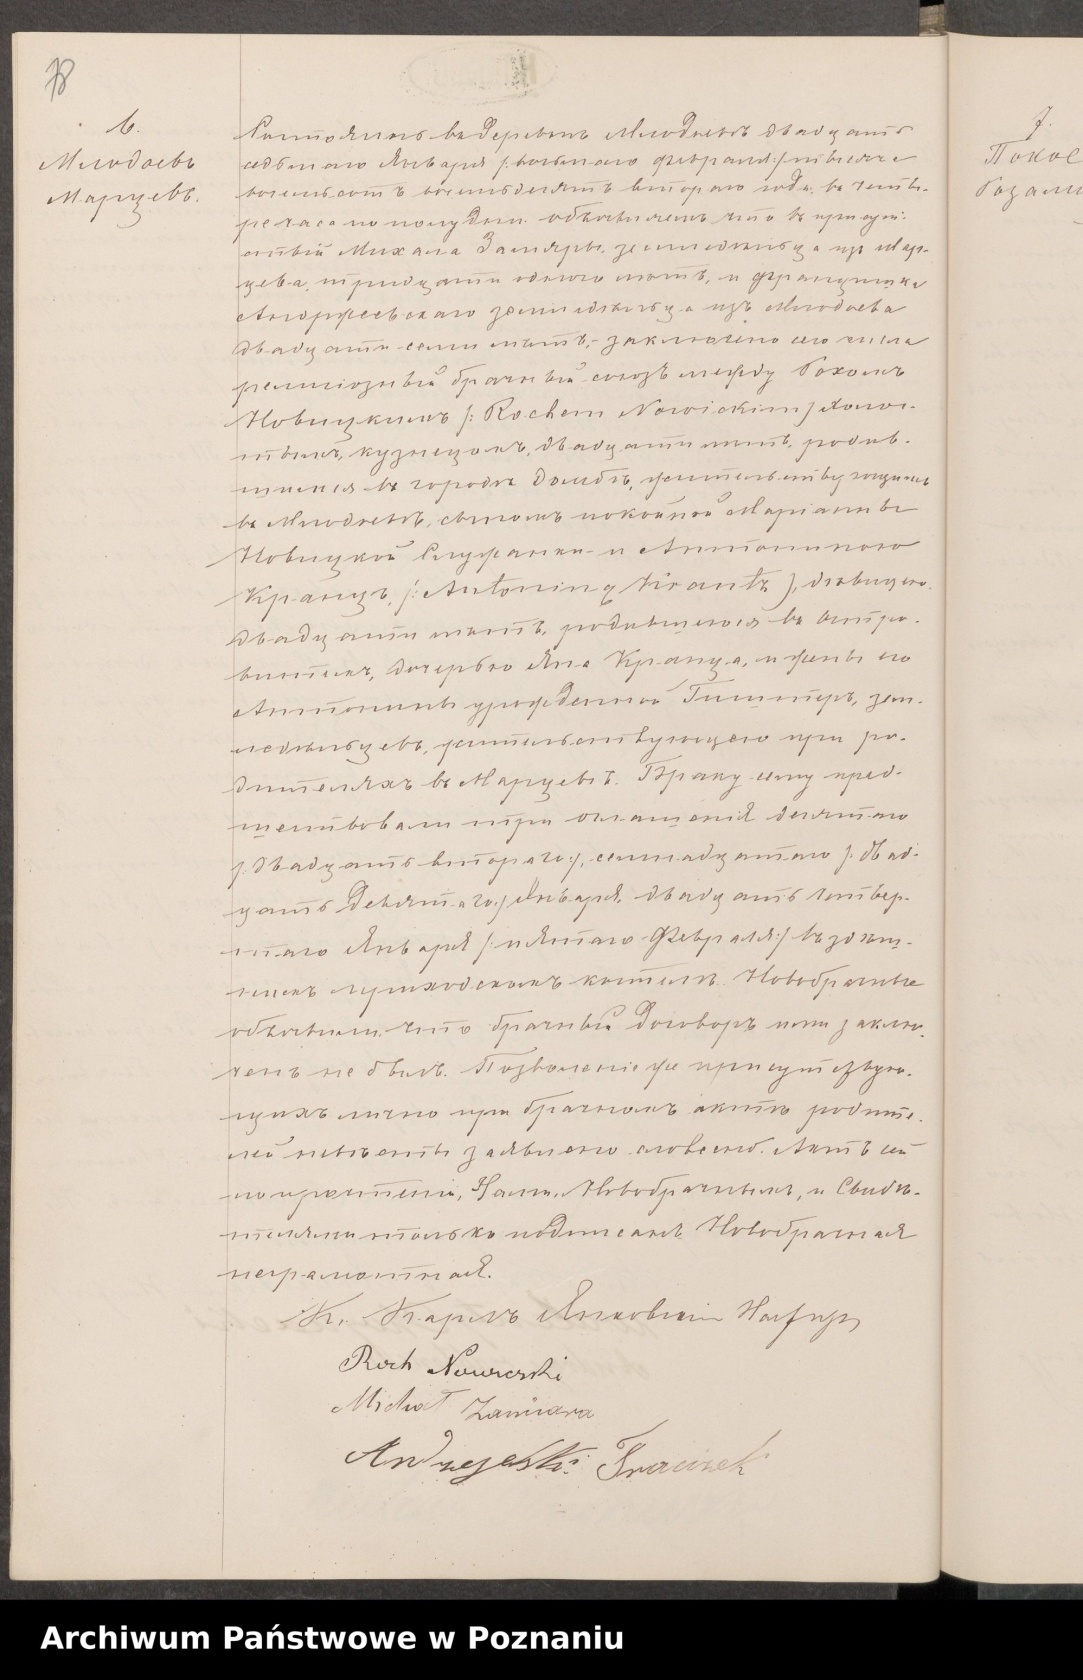 78
6.
Млодоевъ
Марцевъ.
Состоялось въ деревнѣ Млодоевѣ двадцать
седьмаго Января /:восьмаго Февраля:/ тысяча
восемьсотъ восемьдесятъ втораго года, въ четы-
ре часа по полудни. Объявляемъ что въ присут-
ствіи Михала Замяры, земледѣльца изъ Мар-
цева, тридцати одного лѣтъ, и Францишка
Андржеевскаго земледѣльца изъ Млодоева
двадцати семи лѣтъ,- заключенъ сего числа
религіозный брачный союзъ между Рохомъ
Новицкимъ /: Rochem Nowickim / холос-
тымъ, кузнецомъ, двадцати лѣтъ, родив-
шимся въ городѣ Домбѣ, жительствующимъ
въ Млодоевѣ, сыномъ покойной Маріанны
Новицкой Служанки- и Антониною
Кранцъ, /: Antoniną Krantz ), дѣвицею
двадцати лѣтъ, родившеюся въ Остро-
витемъ, дочерью Яна Кранца, и жены его
Антонины урожденной Гишперъ, зем-
ледѣльцевъ, жительствующею при ро-
дителяхъ въ Марцевѣ. Браку сему пред-
шествовали три оглашенія десятаго
/: двадцать втораго:/, семнадцатаго /: двад-
цать девятаго:/ Января, двадцать четвер-
таго Января /: пятаго Февраля:/ въ здѣш-
немъ приходскомъ костелѣ. Новобрачные
объявили что брачный договоръ ими заклю-
ченъ не былъ. Позволеніе же присутствую-
щихъ лично при брачномъ актѣ родите-
лей невѣсты заявлено словесно. Актъ сей
по прочтеніи, Нами, Новобрачнымъ, и Свидѣ-
телями только подписанъ Новобрачная
неграмотная.
К. Карлъ Янковскій
Roch Nowicki
Michał Zamiara
Andrzejeski Franciszek
7.
Archiwum Państwowe w Poznaniu